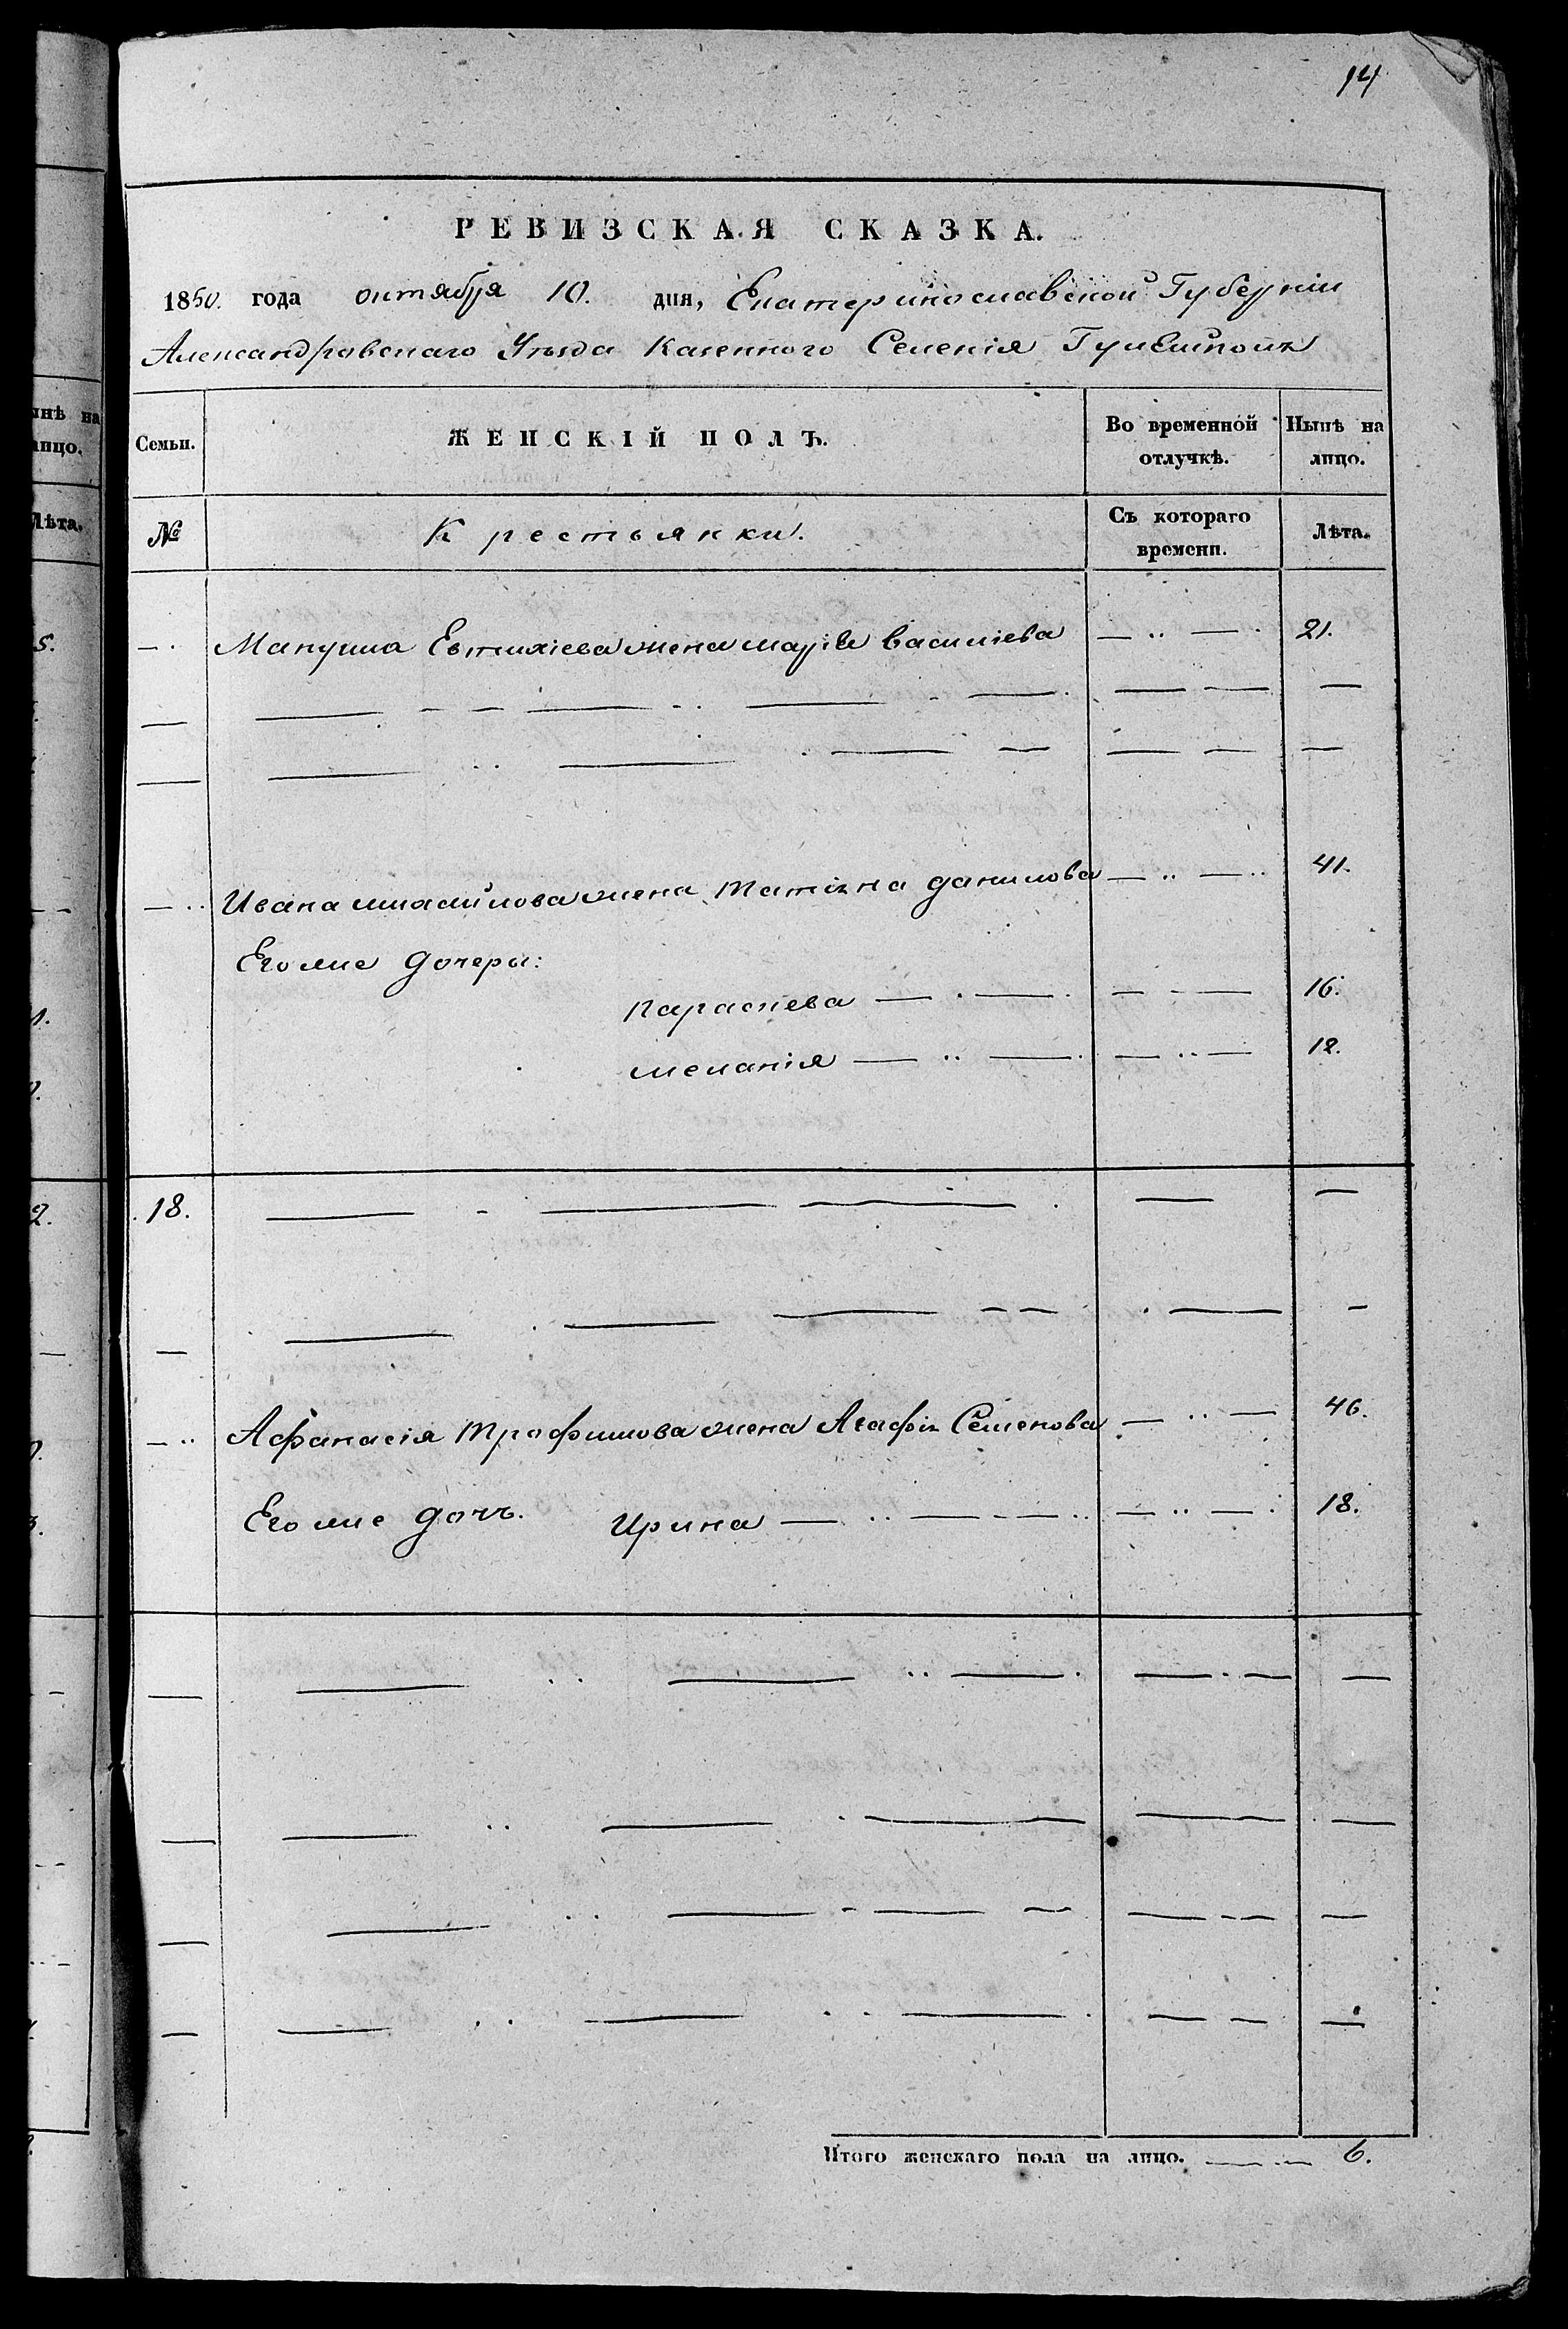 14
РЕВИЗСКАЯ СКАЗКА.
1850. года октября 10. дня, Екатеринославской Губерніи
Александровскаго Уѣзда Казенного Селенія Гуляйполя
Семьи.
ЖЕНСКІЙ ПОЛЪ.
Во временной отлучкѣ.
Нынѣ на лицо.
№
Крестьянки.
Съ котораго времени.
Лѣта.
Евтихіева жена марія василіева 21.
Ивана михайлова жена татіяна данилова 41.
Его же дочери:
параскева 16.
меланія 12.
18.
Афанасія трофимова жена Агафія Семенова 46.
Его же дочь. ирина 18.
Итого женскаго пола на лицо. 6.